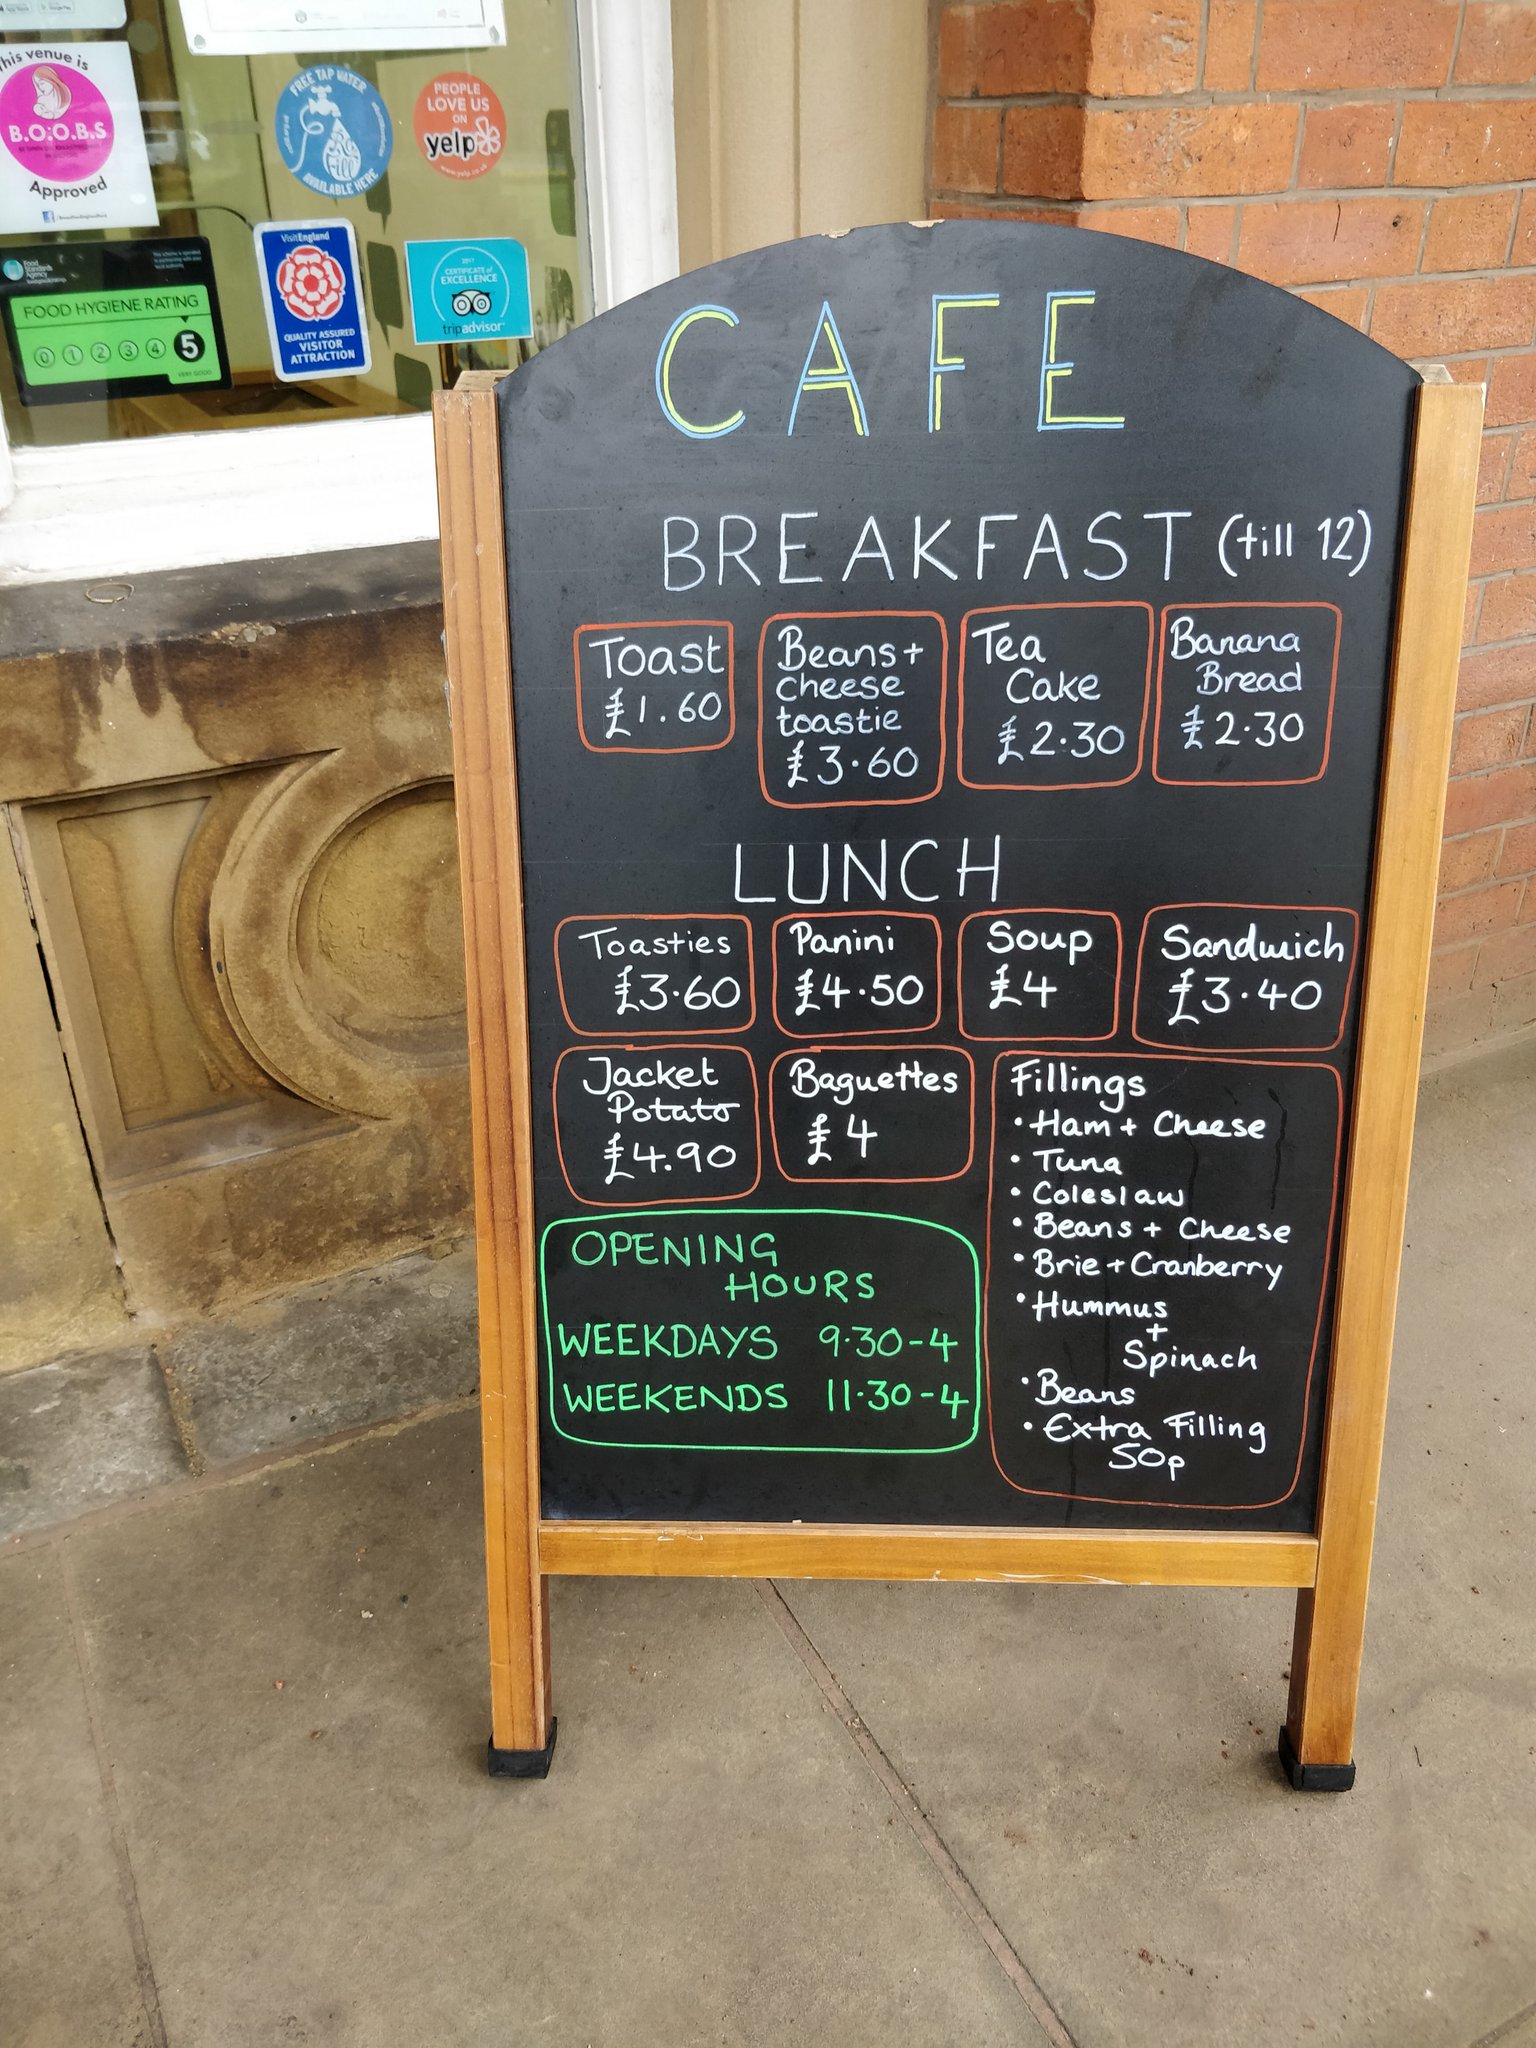 This venue is
B.O.O.B.S
Approved
FREE TAP WATER
Refill
AVAILABLE HERE
PEOPLE
LOVE US
ON
yelp
www.yelp.co.uk
Food
Standards
Agency
FOOD HYGIENE RATING
0 1 2 3 4 5
VERY GOOD
VisitEngland
QUALITY ASSURED
VISITOR
ATTRACTION
2017
CERTIFICATE of
EXCELLENCE
tripadvisor
CAFE
BREAKFAST (till 12)
Toast
£1.60
Beans +
cheese
toastie
£3.60
Tea
Cake
£2.30
Banana
Bread
£2.30
LUNCH
Toasties
£3.60
Panini
£4.50
Soup
£4
Sandwich
£3.40
Jacket
Potato
£4.90
Baguettes
£4
Fillings
• Ham + Cheese
• Tuna
• Coleslaw
• Beans + Cheese
• Brie + Cranberry
• Hummus
+
Spinach
• Beans
• Extra Filling
50p
OPENING
HOURS
WEEKDAYS 9.30-4
WEEKENDS 11.30-4